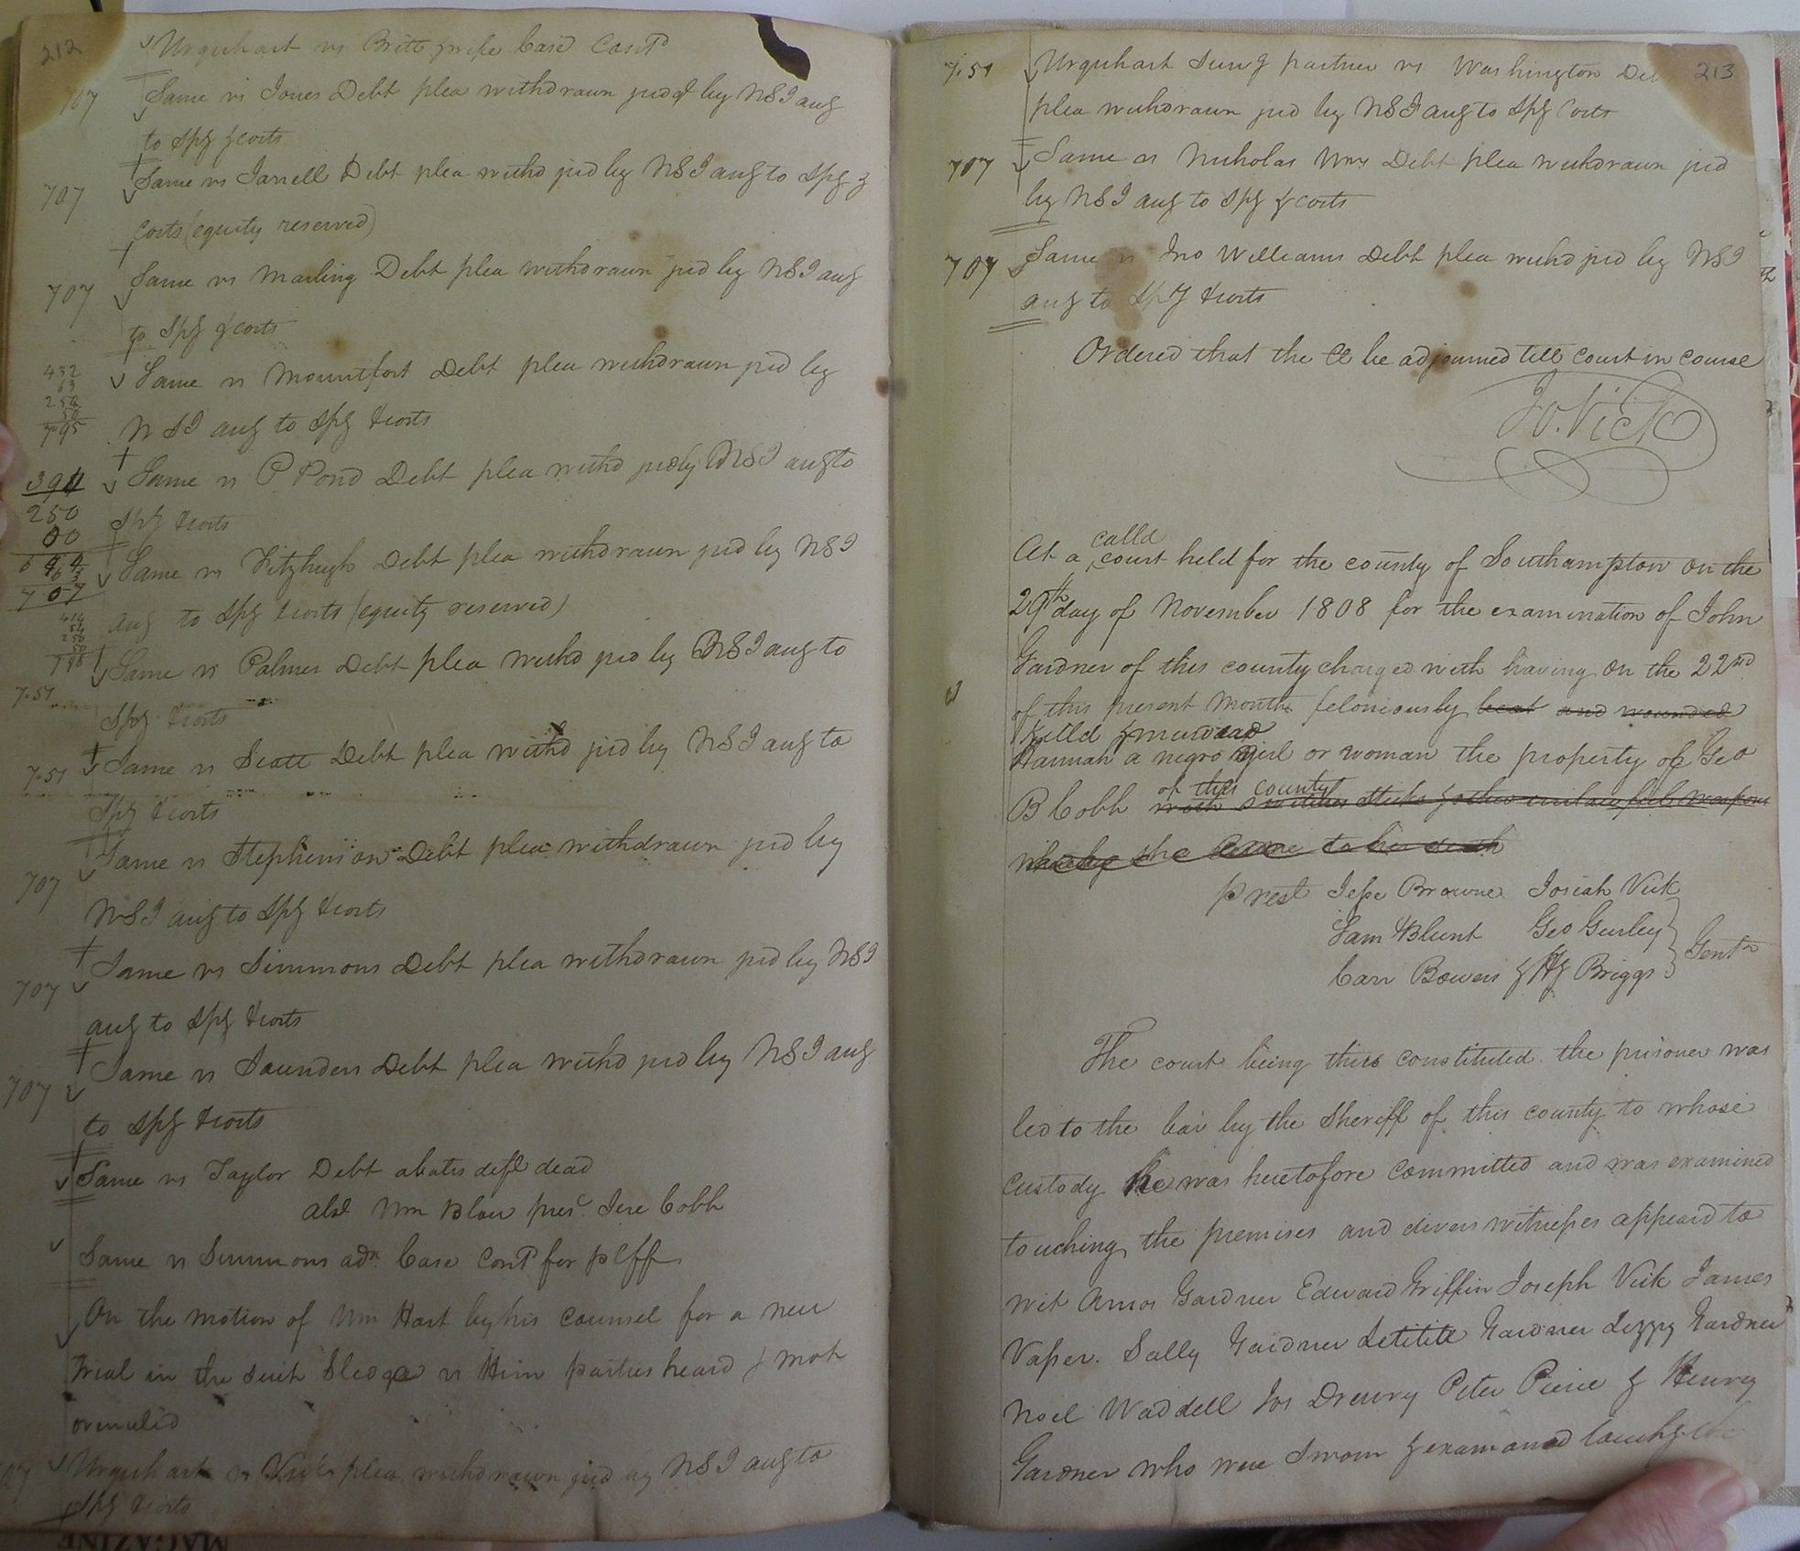 212
Urquhart vs Britt Case Cont'd
707 Same vs Jones Debt plea withdrawn jud by NSI aug
to Spf & costs
707 Same vs Jarrell Debt plea withd jud by NSI aug to Spf &
costs (equity reserved)
707 Same vs Marling Debt plea withdrawn jud by NSI aug
to Spf & costs
432
63
250
50
795
Same vs Mountfort Debt plea withdrawn jud by
NSI aug to Spf & costs
394
250
00
Same vs P Pond Debt plea withd jud by NSI aug to
Spf & costs
63
707
Same vs Fitzhugh Debt plea withdrawn jud by NSI
aug to Spf & costs (equity reserved)
Same vs Palmer Debt plea withd jud by NSI aug to
7.51
Spf & costs
7.51 Same vs Scott Debt plea withd jud by NSI aug to
Spf & costs
707 Same vs Stephenson Debt plea withdrawn jud by
NSI aug to Spf & costs
707 Same vs Simmons Debt plea withdrawn jud by NSI
aug to Spf & costs
707 Same vs Saunders Debt plea withd jud by NSI aug
to Spf & costs
Same vs Taylor Debt abates deft dead
abst Wm Blow pres. Jere Cobb
Same vs Simmons adr Case Cont'd for plff
On the motion of Wm Hart by his counsel for a new
trial in the suit Sledge vs Him parties heard & mot
overuled
Urquhart vs plea withdrawn jud by NSI aug to
Spf & costs
MAGAZINE
213
7.51 Urquhart Surv'g partner vs Washington Deb
plea withdrawn jud by NSI aug to Spf Costs
707 Same vs Nicholas Wms Debt plea withdrawn jud
by NSI aug to Spf & costs
707 Same vs Jno Williams Debt plea withd jud by NSI
aug to Spf & costs
Ordered that the Ct be adjourned till court in course
Jo. Vick
calld
At a court held for the county of Southampton on the
29th day of November 1808 for the examination of John
Gardner of this county charged with having on the 22nd
of this present Month feloniously beat and wounded
killd & murderd
Hannah a negro girl or woman the property of Geo
of this county
B Cobb with switches sticks & other unlawful weapons
whereby she came to her death
Prest Jesse Browne Josiah Vick
Sam Blunt Geo Gurley
Carr Bowers & Hy Briggs
Gentn
The court being thus constituted the prisoner was
led to the bar by the Sheriff of this county to whose
custody he was heretofore committed and was examined
touching the premises and divers witnesses appeard to
wit Amos Gardner Edward Griffin Joseph Vick James
Vasser. Sally Gardner Letitite Gardner Lizzy Gardner
Noel Waddell Jos Drewry Peter Pierce & Henry
Gardner who were sworn & examined touchg the